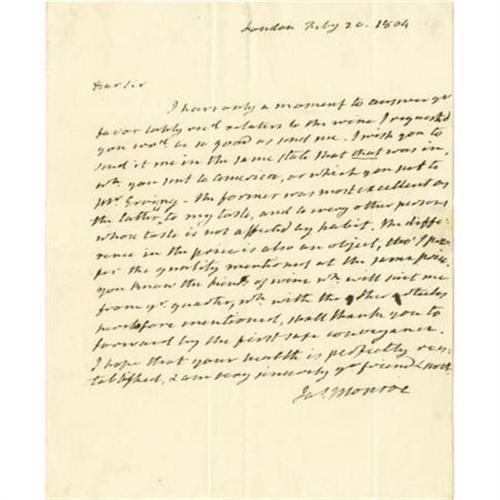 London Feby 20. 1804
Dear Sir
I have only a moment to answer yr
favor lately recd relative to the wine I requested
you wod. be so good as send me. I wish you to
send it me in the same state that that was in,
wh. you sent to America, or which you sent to
Mr. Erving. The former was most excellent as
the latter is, to my taste, and to every other persons
whose taste is not affected by habit. The diffe-
rence in the price is also an object, tho' I
for the quality mentioned at the same price.
You know the kinds of wine wh. will suit me
from yr. quarter, wh. with the other
heretofore mentioned, shall thank you to
forward by the first safe conveyance.
I hope that your health is perfectly rees-
tablished, & am very sincerely yr friend &
Jas. Monroe